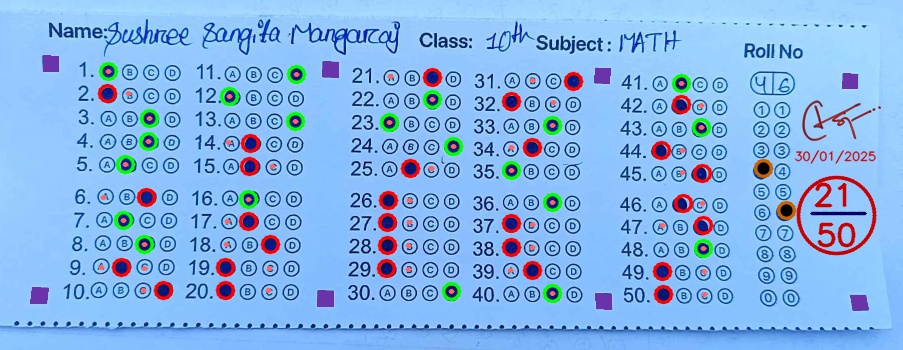 Name: Sushree Sangita Mangaraj Class: 10th Subject: MATH
Roll No
46
1. A B C D
2. A B C D
3. A B C D
4. A B C D
5. A B C D
6. A B C D
7. A B C D
8. A B C D
9. A B C D
10. A B C D
11. A B C D
12. A B C D
13. A B C D
14. A B C D
15. A B C D
16. A B C D
17. A B C D
18. A B C D
19. A B C D
20. A B C D
21. A B C D
22. A B C D
23. A B C D
24. A B C D
25. A B C D
26. A B C D
27. A B C D
28. A B C D
29. A B C D
30. A B C D
31. A B C D
32. A B C D
33. A B C D
34. A B C D
35. A B C D
36. A B C D
37. A B C D
38. A B C D
39. A B C D
40. A B C D
41. A B C D
42. A B C D
43. A B C D
44. A B C D
45. A B C D
46. A B C D
47. A B C D
48. A B C D
49. A B C D
50. A B C D
1 1
2 2
3 3
4
5 5
6
7 7
8 8
9 9
0 0
30/01/2025
21
50